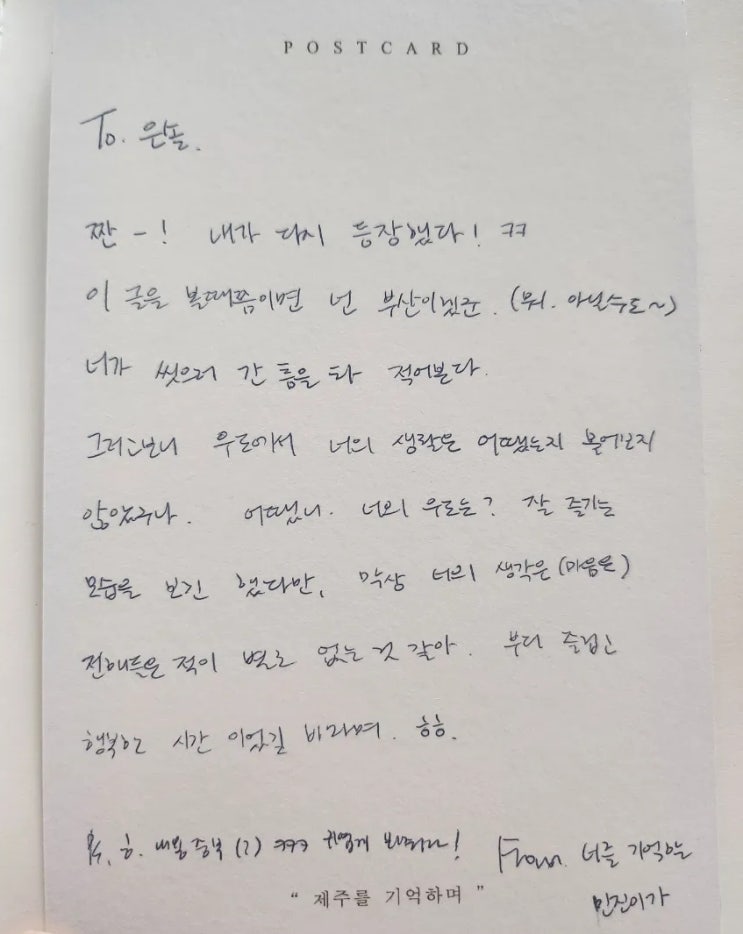 POSTCARD
To. 은솔.
짠-! 내가 다시 등장했다! ㅋㅋ
이 글을 볼때쯤이면 넌 부산이겠군. (뭐. 아닐수도~)
너가 씻으러 간 틈을 타 적어본다.
그러고보니 우도에서 너의 생각은 어땠는지 물어보지
않았구나. 어땠니. 너의 우도는? 잘 즐기는
모습을 보긴 했다만, 막상 너의 생각은(마음은)
전해들은 적이 별로 없는 것 같아. 부디 즐겁고
행복한 시간 이었길 바라며. 흐흐.
흐. 내용 중복 (?) ㅋㅋㅋ 귀엽게 봐줘라! From. 너를 기억하는
민진이가
“ 제주를 기억하며 ”